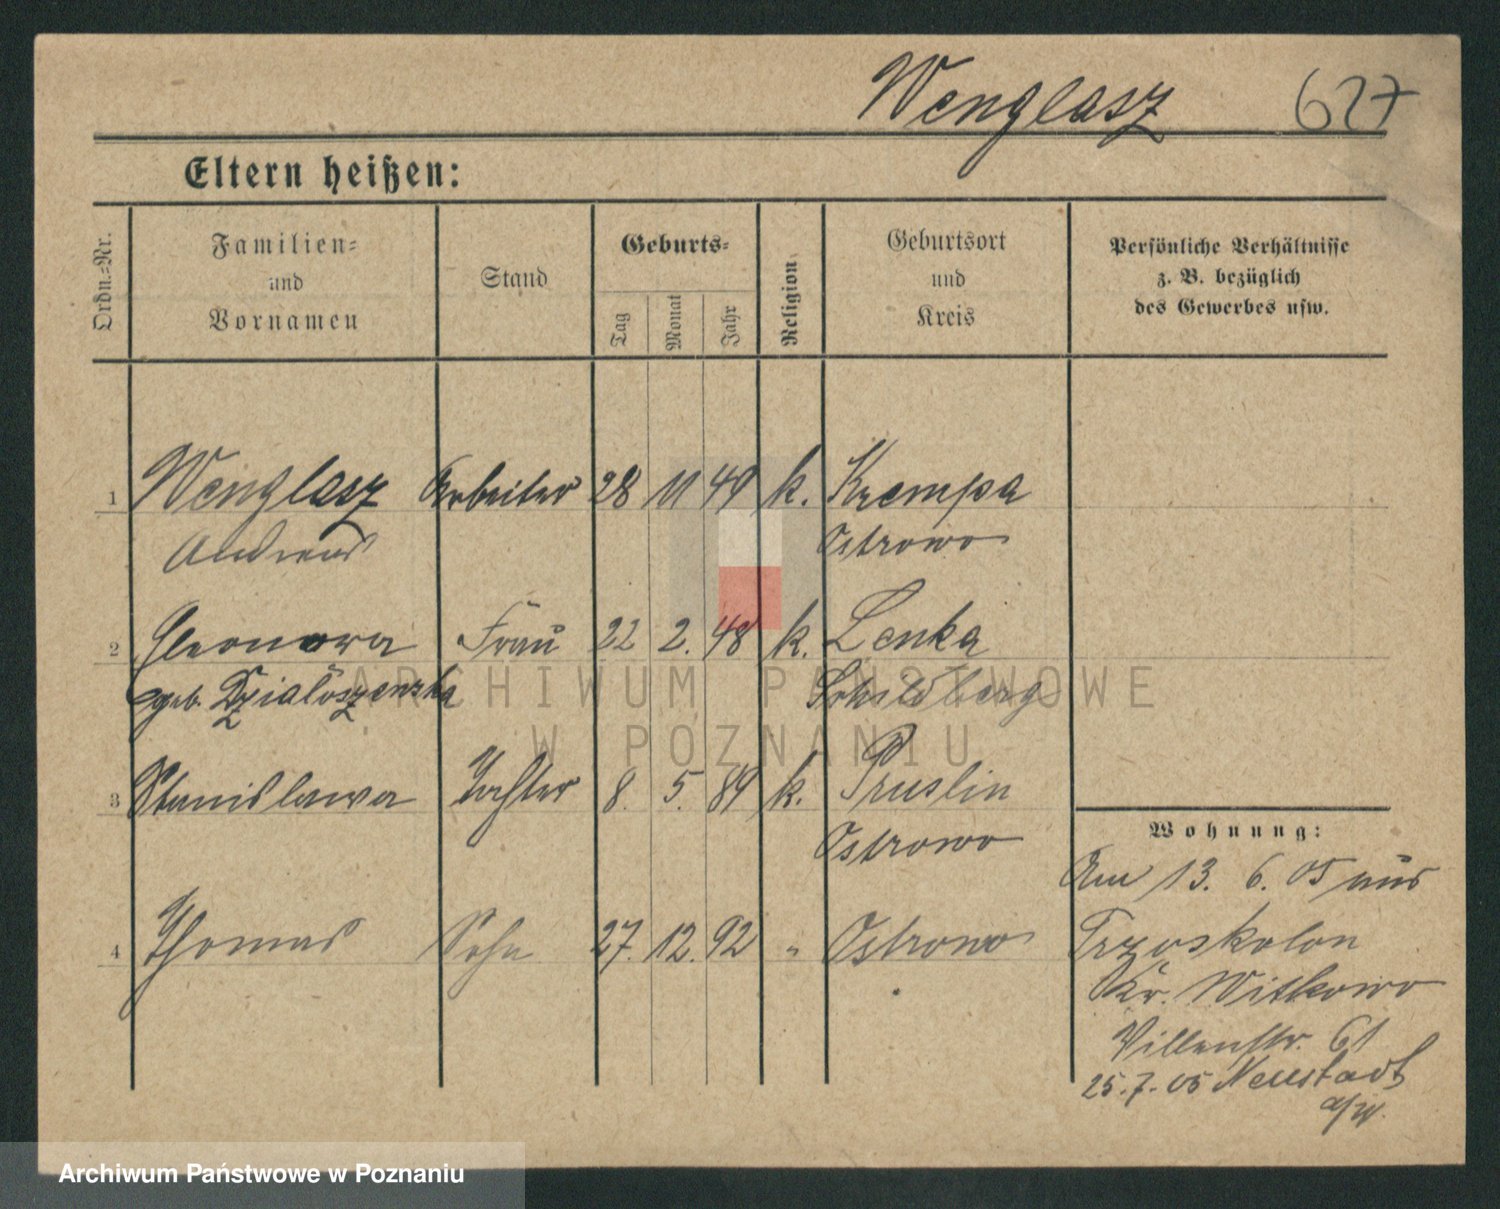 Wenglasz 627
Eltern heißen:
Ordn.=Nr.
Familien=
und
Vornamen
Stand
Geburts=
Tag
Monat
Jahr
Religion
Geburtsort
und
Kreis
Persönliche Verhältnisse
z. B. bezüglich
des Gewerbes usw.
1 Wenglasz Arbeiter 28 11 49 k. Krempa
Andreas Ostrowo
2 Eleonora Frau 22 2. 48 k. Lenka
geb. Dzialoszenska Schildberg
3 Stanislawa Tochter 8. 5. 89 k. Pruslin
Ostrowo
4 Thomas Sohn 27. 12. 92 " Ostrowo
Wohnung:
Am 13. 6. 05 aus
Trzoskolon
Kr. Witkowo
Villenstr. 61
25.7.05 Neustadt
a/W.
ARCHIWUM PAŃSTWOWE
W POZNANIU
Archiwum Państwowe w Poznaniu